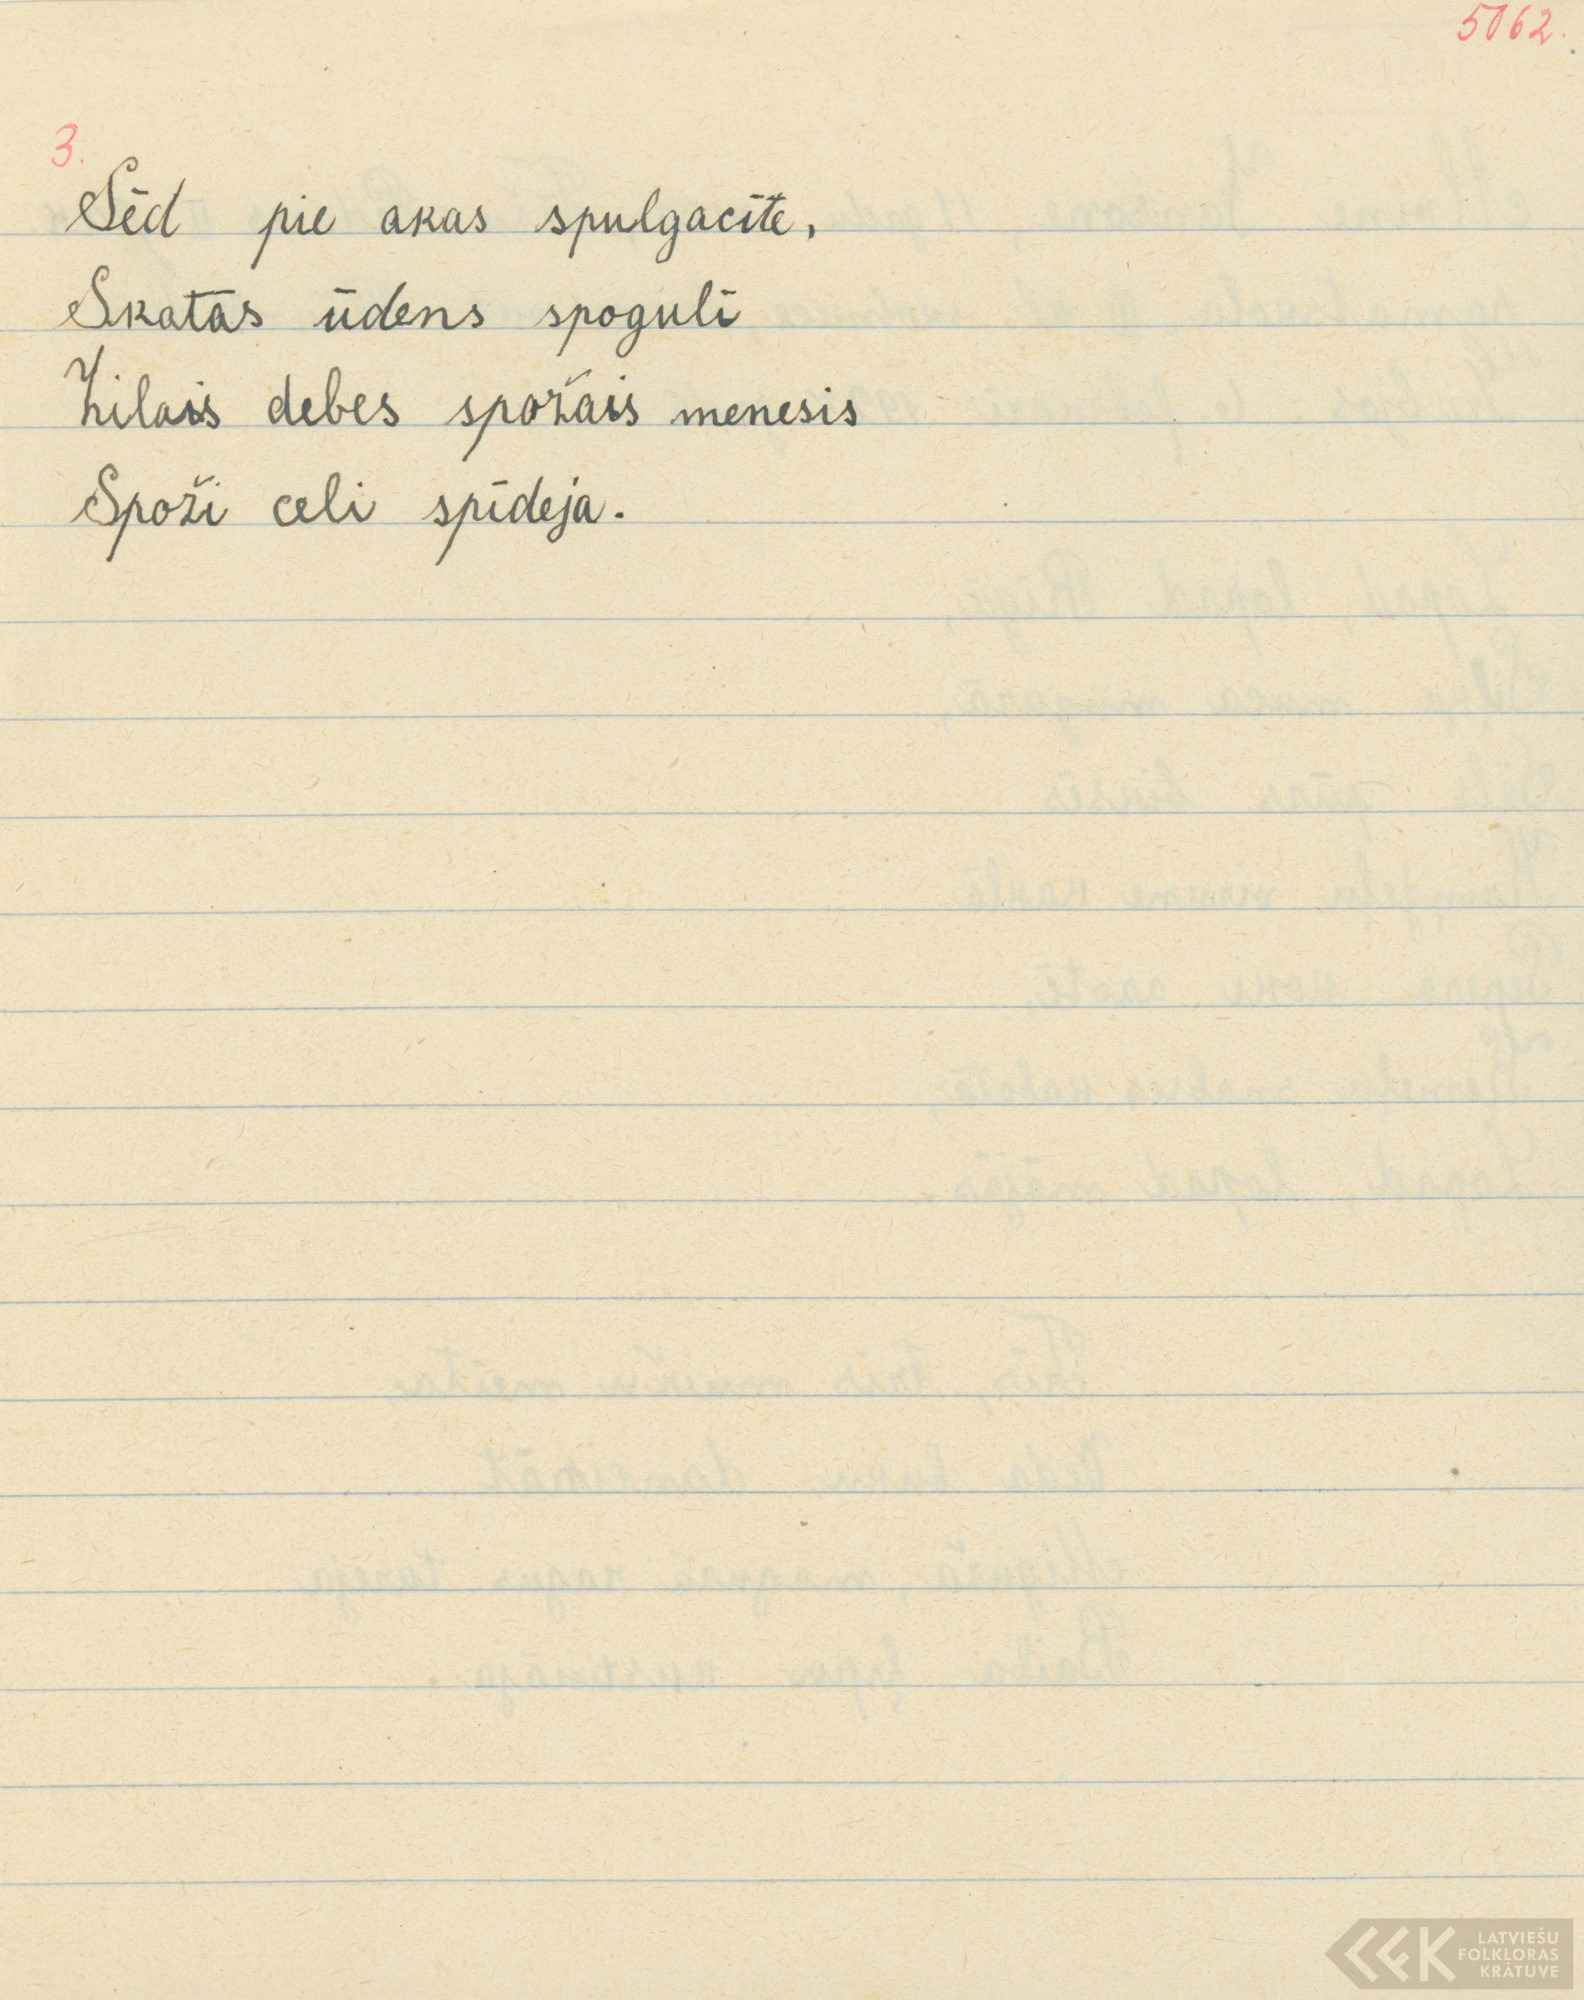 5062.
3.
Sēd pie akas spulgacīte,
Skatās ūdens spogulī
Zilais debes spožais menesis
Spoži celi spīdeja.
LATVIEŠU
FOLKLORAS
KRĀTUVE